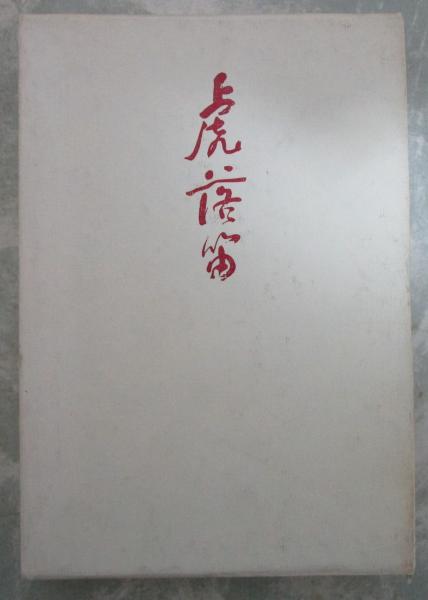 虎落笛